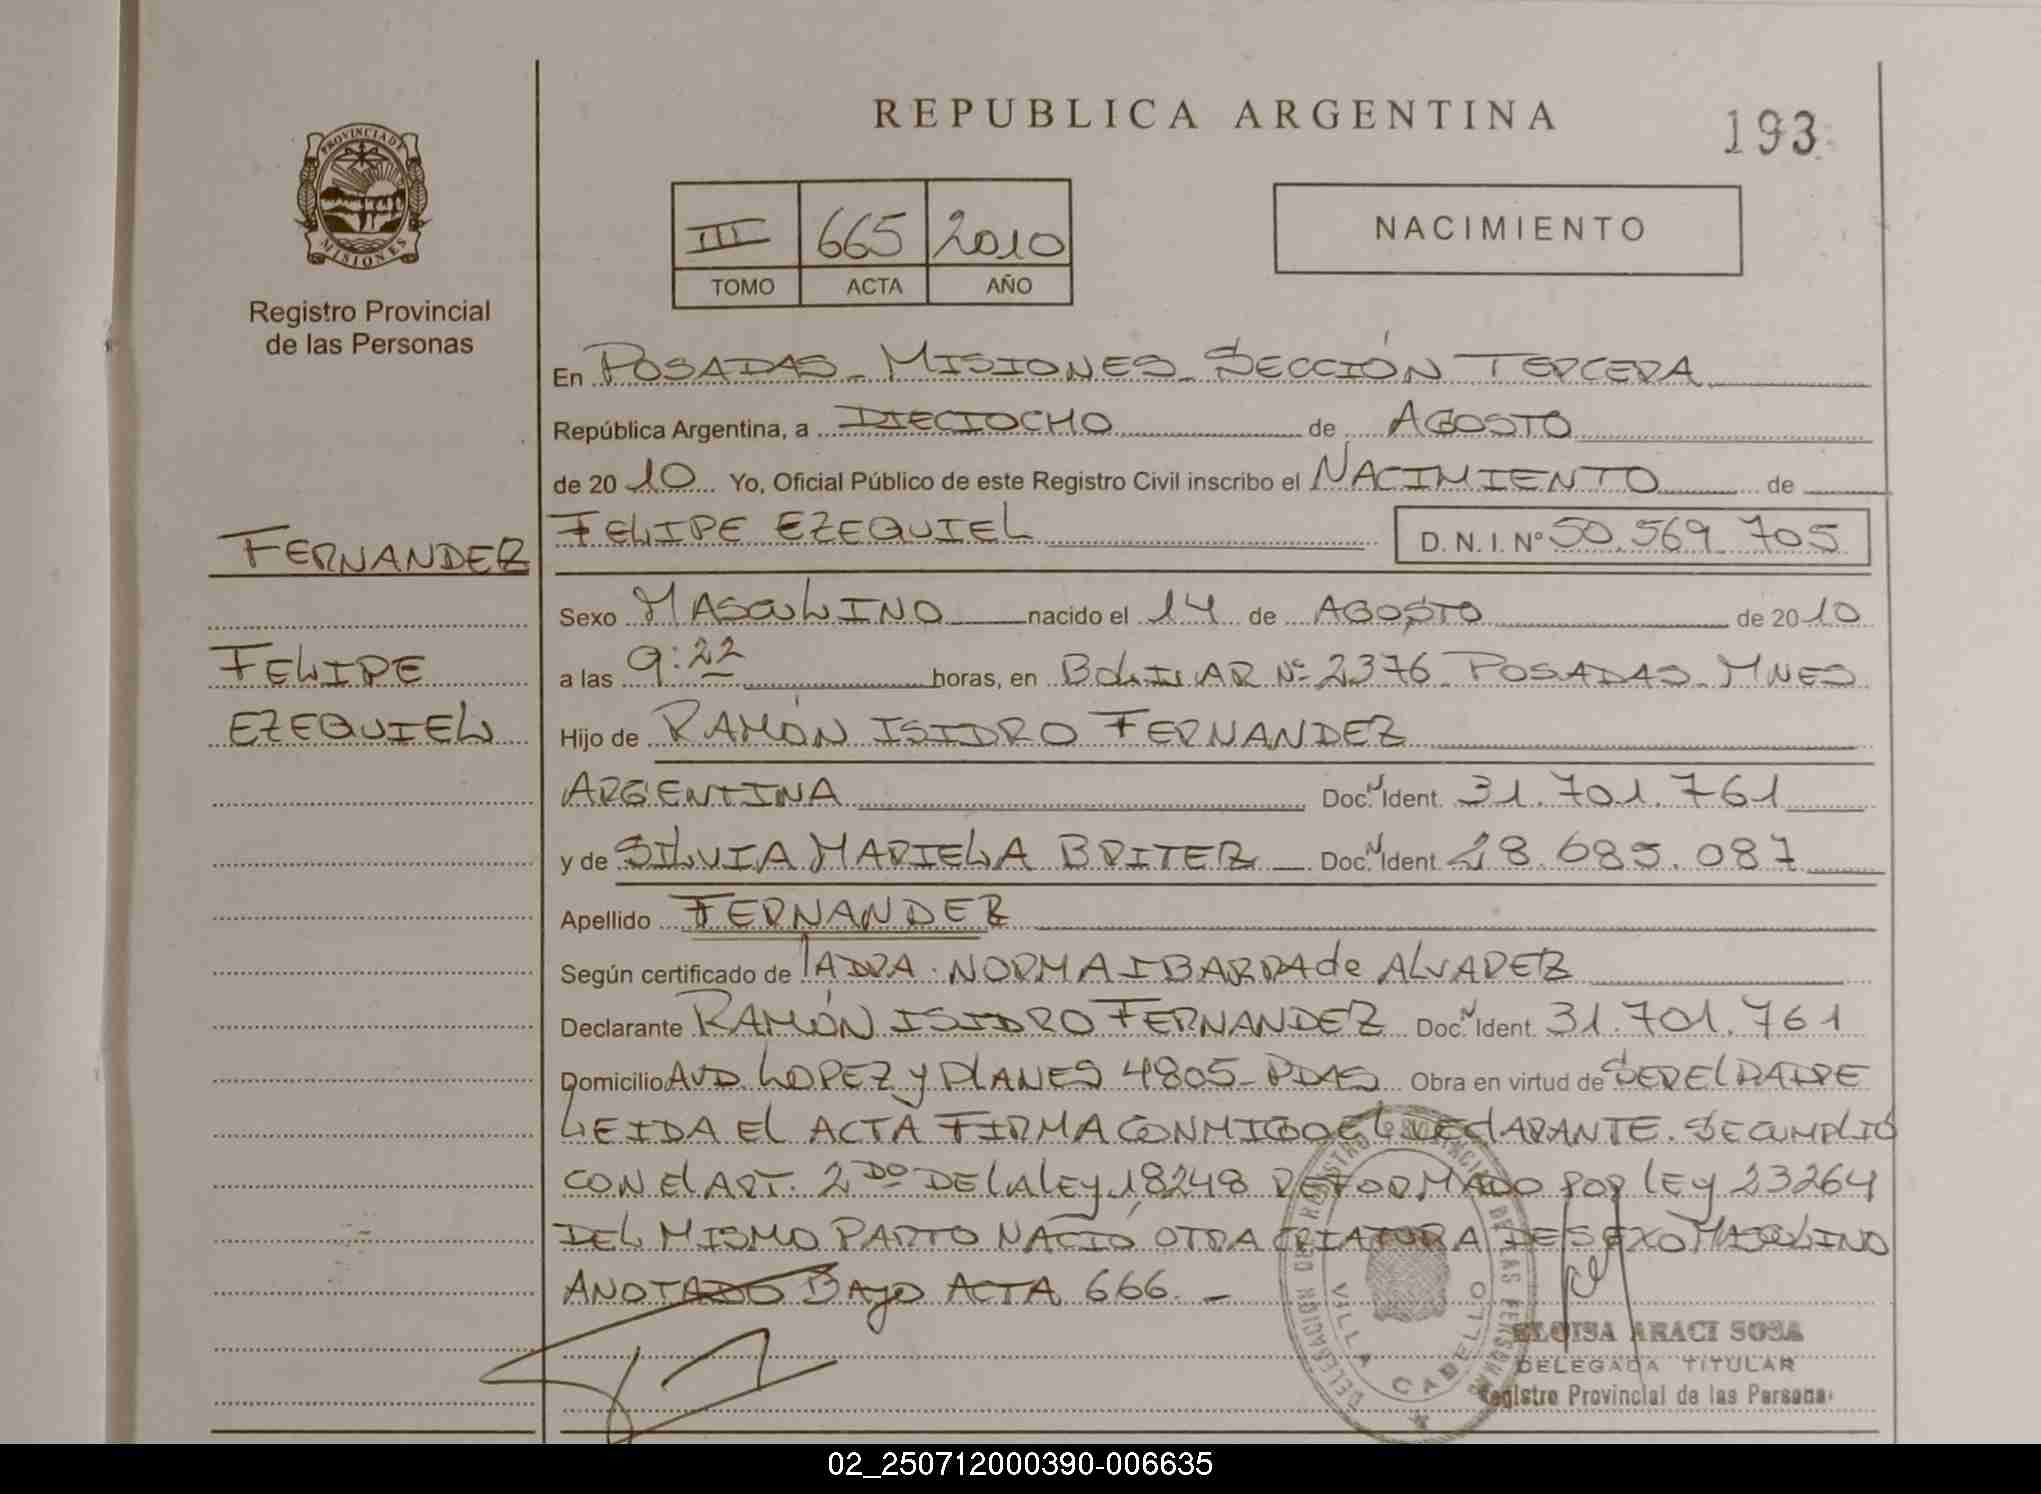 REPUBLICA ARGENTINA
193
PROVINCIA DE
MISIONES
Registro Provincial
de las Personas
III 665 2010
TOMO ACTA AÑO
NACIMIENTO
En POSADAS - MISIONES - SECCIÓN TERCERA
República Argentina, a DIECIOCHO de AGOSTO
de 20 10 Yo, Oficial Público de este Registro Civil inscribo el NACIMIENTO de
FERNANDEZ
FELIPE EZEQUIEL D. N. I. Nº 50.569.705
Sexo MASCULINO nacido el 14 de AGOSTO de 2010
FELIPE
EZEQUIEL
a las 9:22 horas, en BOLIVAR Nº 2376 - POSADAS - MNES
Hijo de RAMÓN ISIDRO FERNANDEZ
ARGENTINA Doc. N Ident. 31.701.761
y de SILVIA MARIELA BRITEZ Doc. N Ident. 28.685.087
Apellido FERNANDEZ
Según certificado de NORMA IBARRA de ALVAREZ
Declarante RAMÓN ISIDRO FERNANDEZ Doc. N Ident. 31.701.761
Domicilio AVD. LOPEZ y PLANES 4805 - PDAS Obra en virtud de SER EL PADRE
LEIDA EL ACTA FIRMA CONMIGO EL DECLARANTE. SE CUMPLIÓ
CON EL ART. 2DO DE LA LEY 18248 REFORMADO POR LEY 23264
DEL MISMO PARTO NACIÓ OTRA CRIATURA DE SEXO MASCULINO
ANOTADO BAJO ACTA 666. -
DELEGACION REGISTRO PROVINCIAL DE LAS PERSONAS
VILLA CABELLO
ELOISA ARACI SOSA
DELEGADA TITULAR
Registro Provincial de las Personas
02_250712000390-006635